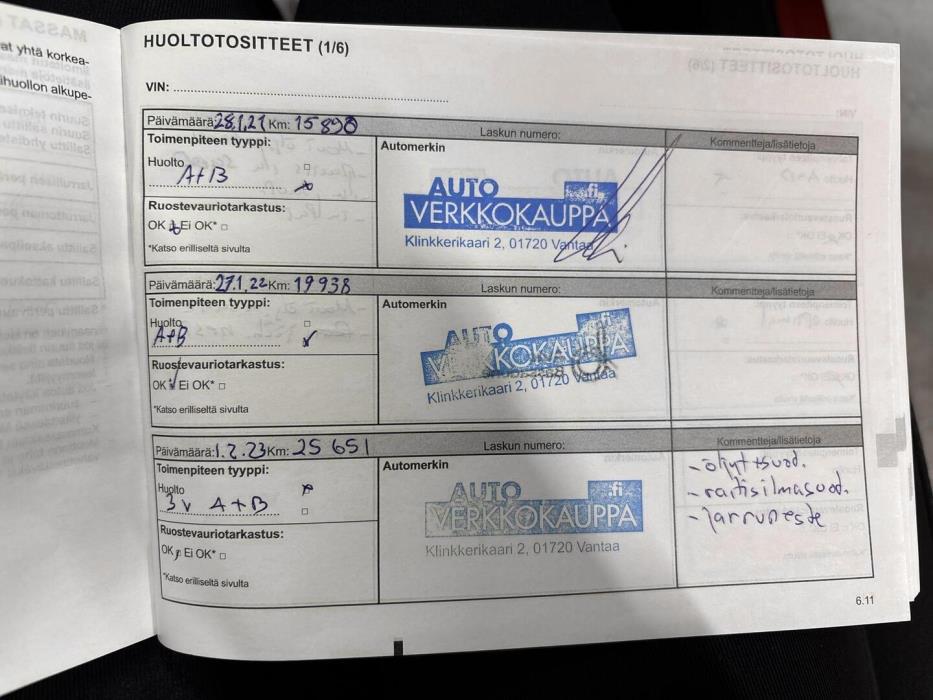 at yhtä korkea-
ihuollon alkupe-
HUOLTOTOSITTEET (1/6)
VIN:
Päivämäärä: 28.1.21 Km: 15890
Laskun numero:
Kommentteja/lisätietoja
Toimenpiteen tyyppi:
Automerkin
Huolto
A+B
AUTO .fi
VERKKOKAUPPA
Klinkkerikaari 2, 01720 Vantaa
Ruostevauriotarkastus:
OK Ei OK*
*Katso erilliseltä sivulta
Päivämäärä: 27.1.22 Km: 19938
Laskun numero:
Kommentteja/lisätietoja
Toimenpiteen tyyppi:
Automerkin
Huolto
A+B
AUTO .fi
VERKKOKAUPPA
Klinkkerikaari 2, 01720 Vantaa
Ruostevauriotarkastus:
OK Ei OK*
*Katso erilliseltä sivulta
Päivämäärä: 1.2.23 Km: 25 651
Laskun numero:
Kommentteja/lisätietoja
Toimenpiteen tyyppi:
Automerkin
Huolto
3v A+B
- öljyt+suod.
- raitisilmasuod.
- Jarruneste
AUTO .fi
VERKKOKAUPPA
Klinkkerikaari 2, 01720 Vantaa
Ruostevauriotarkastus:
OK Ei OK*
*Katso erilliseltä sivulta
6.11